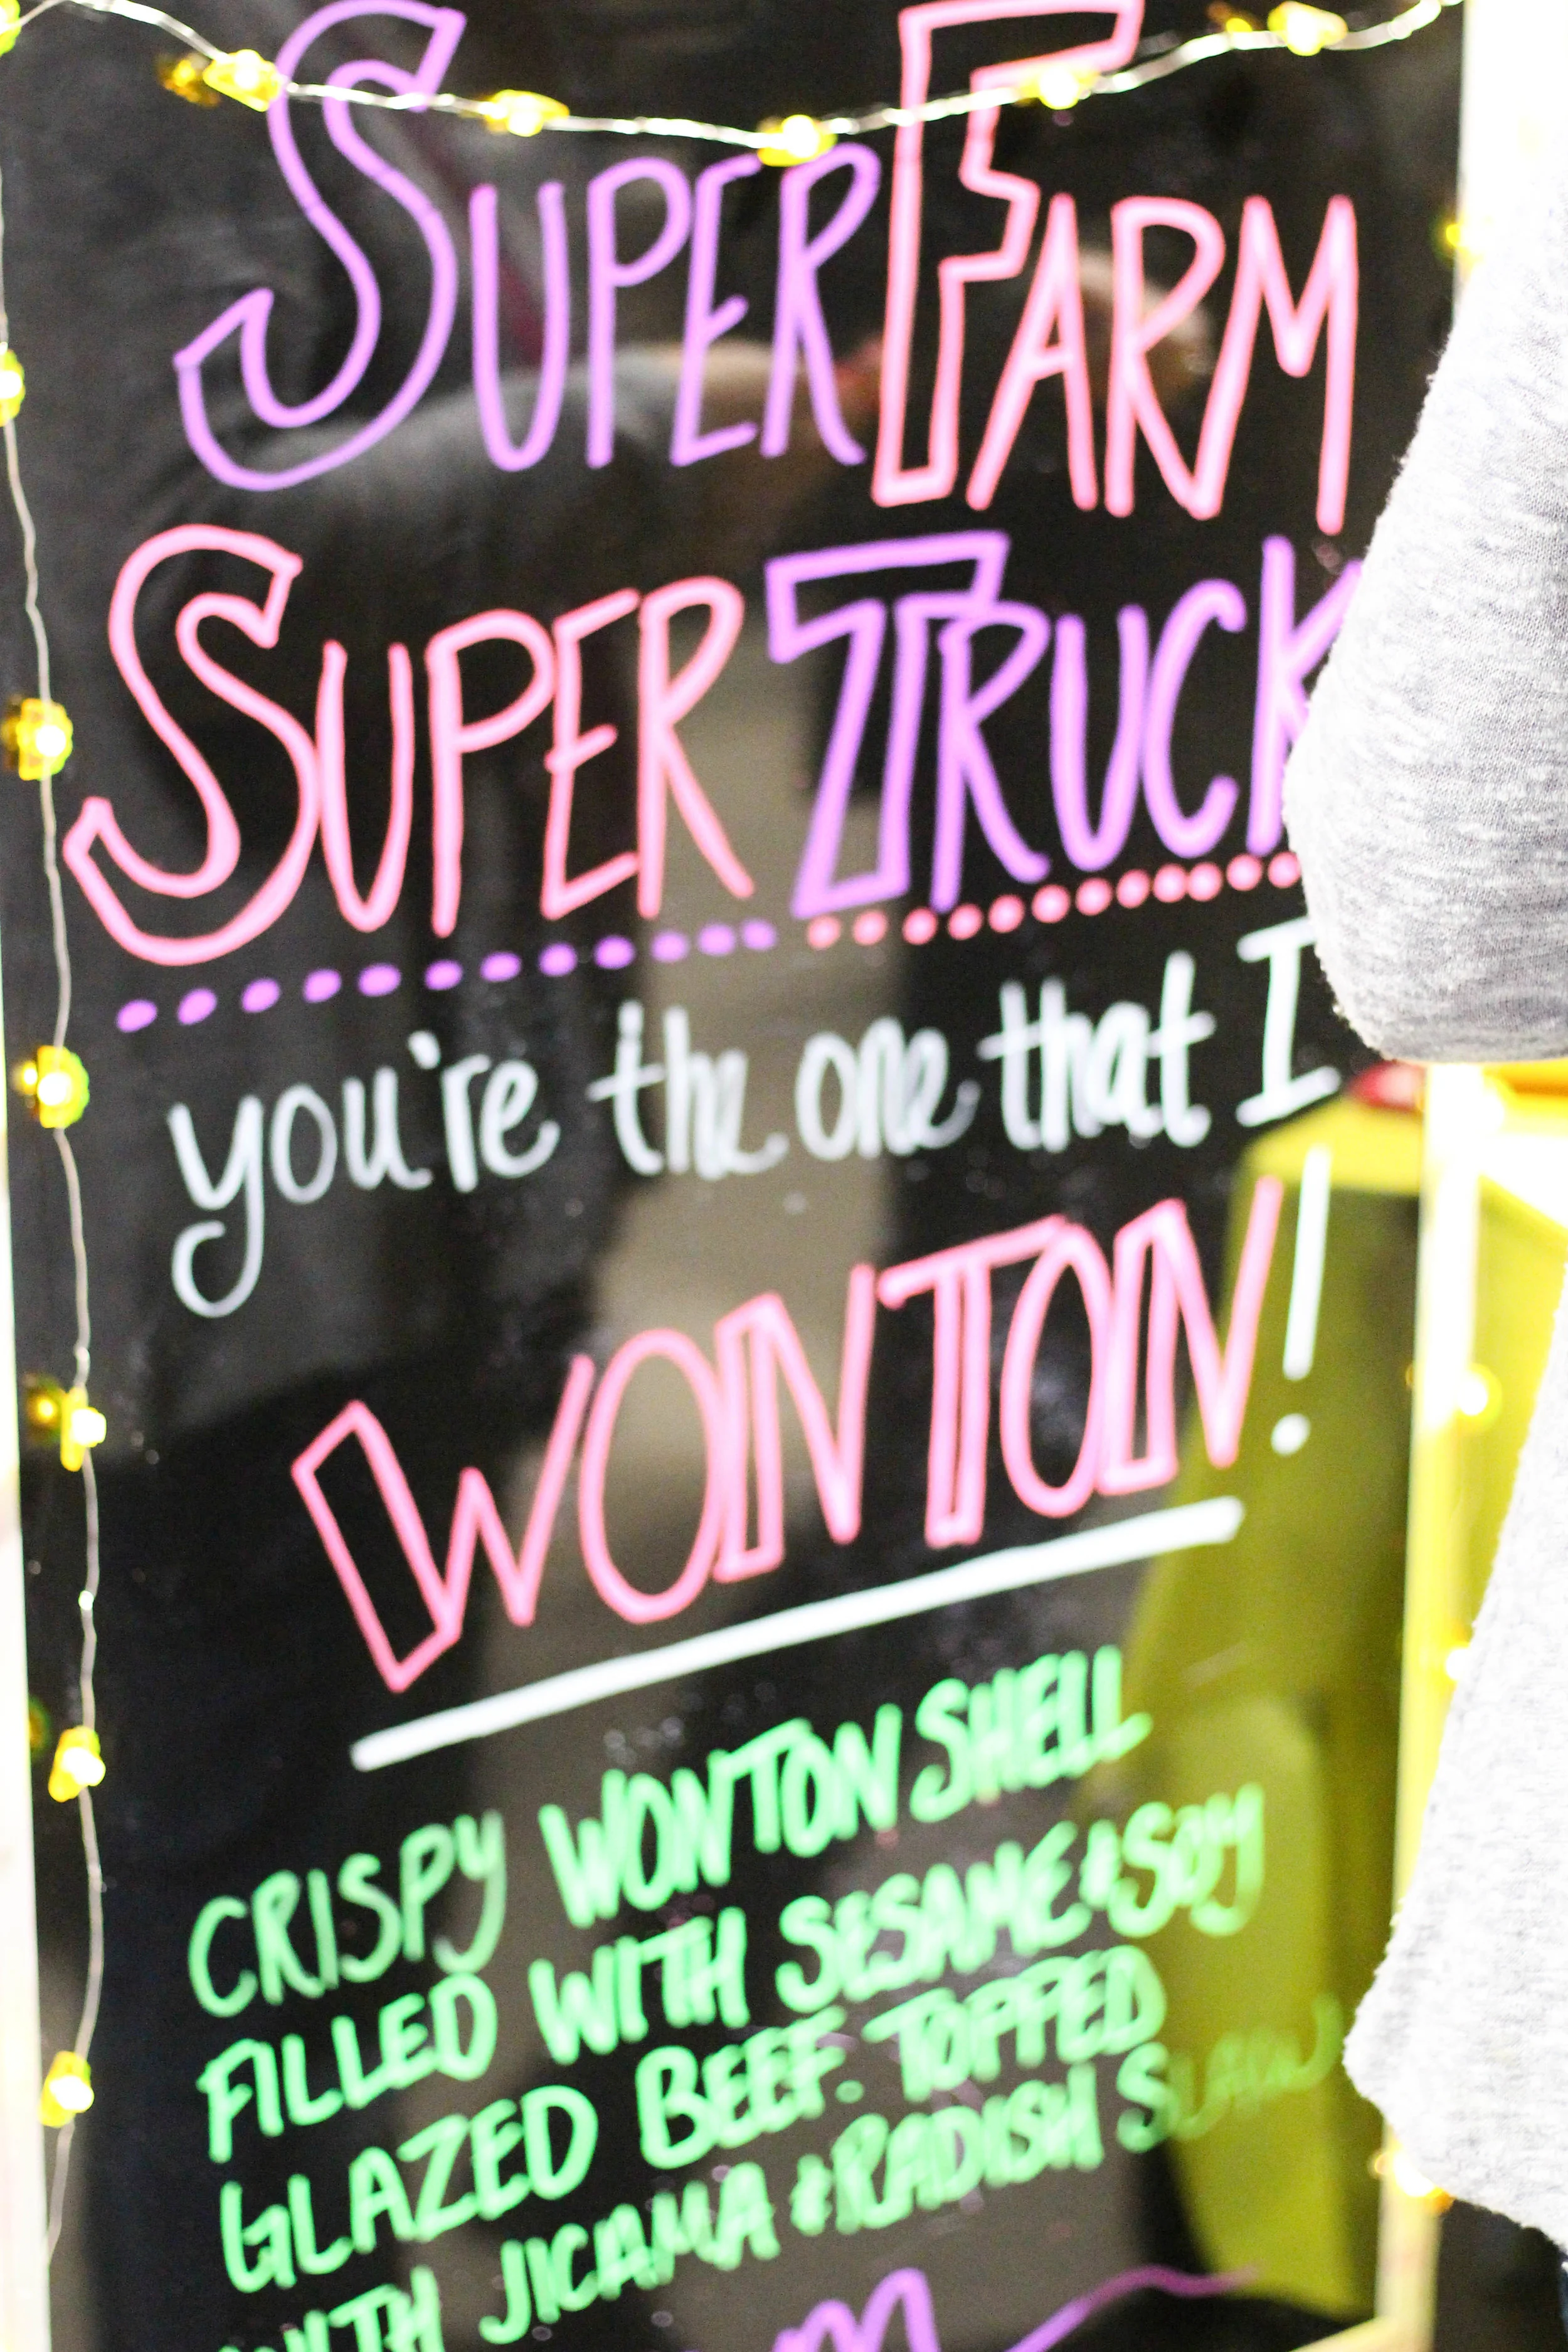 SUPERFARM
SUPER TRUCK
you're the one that I
WONTON!
CRISPY WONTON SHELL
FILLED WITH SESAME & SOY
GLAZED BEEF. TOPPED
WITH JICAMA & RADISH SLAW